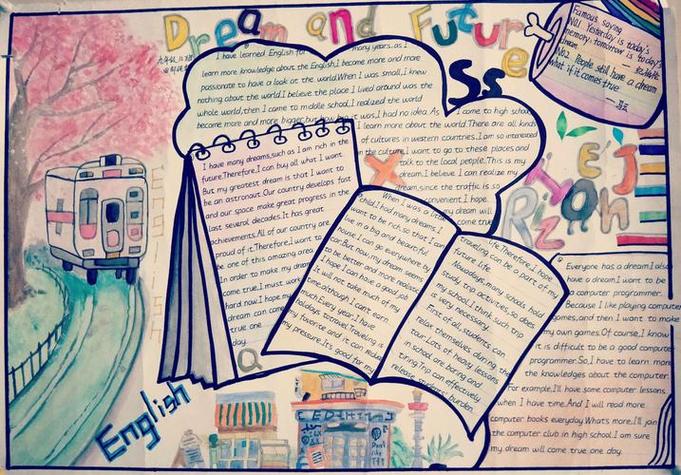 Dream and Future
I have learned English for many years. as I
learn more knowledge about the English,I become more and more
passionate to have a look at the world.When I was small,I knew
nothing about the world.I believe the place I lived around was the
whole world,then I came to middle school,I realized the world
become more and more bigger,but how big it was,I had no idea. As I came to high school,
I learn more about the world.There are all kinds
of cultures in western countries.I am so interested
in the culture,I want to go to these places and
talk to the local people.This is my
dream.I believe I can realize my
dream,since the traffic is so
convenient.I hope
my dream will
come true.
I have many dreams,such as I am rich in the
future.Therefore,I can buy all what I want.
But my greatest dream is that I want to
be an astronaut.Our country develops fast
and our space make great progress in the
last several decades.It has great
achievements.All of our country are
proud of it.Therefore,I want to
be one of this amazing area
In order to make my dream
come true,I must work
hard now.I hope my
dream can come
true one
day.
When I was a little
child,I had many dreams,I
want to be rich,so that I can
live in a big and beautiful
house,I can go everywhere by
car.But now,my dream seems
to be better and more realistic
I hope I can have a good job
It will not take much of my
time,although I can't earn
much.Every year,I have
holidays to travel.Traveling is
my favorite and it can reduce
my pressure.It's good for my
life.Therefore,I hope
traveling can be a part of my
future life.
Nowadays,many schools hold
study trip activities,so does
my school.I think such trip
is very necessary.
First of all,students can
relax themselves during the
tour.Lots of heavy lessons
in school are boring and
tiring.Trip can effectively
release students' burden.
Famous saying
No1. Yesterday is today's
memory,tomorrow is today's
dream.
No2. People still have a dream
what if it comes true
Ss
Everyone has a dream.I also
have a dream.I want to be
a computer programmer.
Because I like playing computer
games,and then I want to make
my own games.Of course,I know
it is difficult to be a good computer
programmer.So,I have to learn more
the knowledges about the computer.
For example,I'll have some computer lessons,
when I have time.And I will read more
computer books everyday.What's more,I'll join
the computer club in high school.I am sure
my dream will come true one day.
English